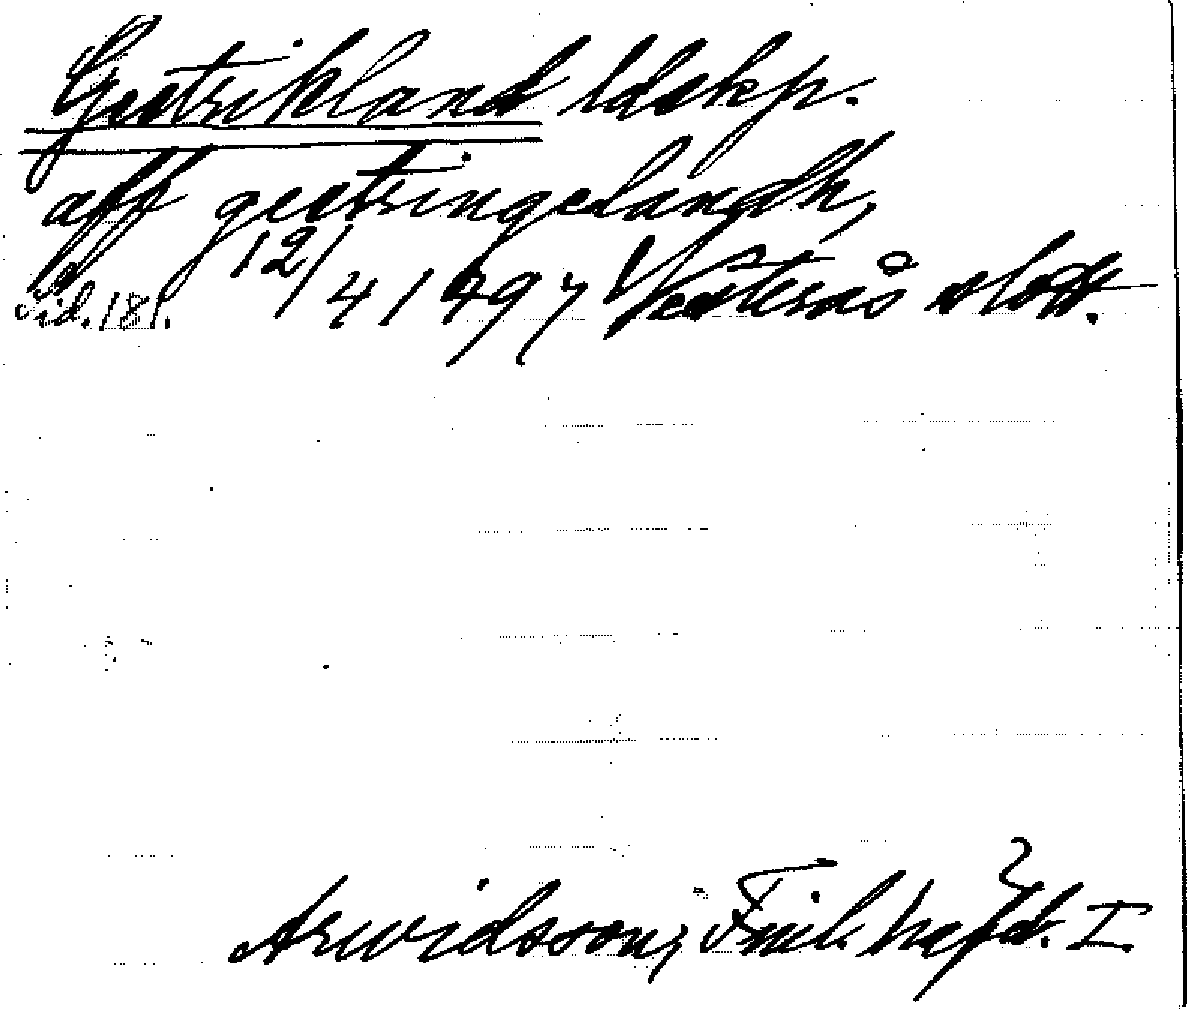 Gestrikland ldskp.
aff gestringelandh,
sid. 181. 12/4 1497 Västerås slott.
Arwidsson, Finl. häfd. I.